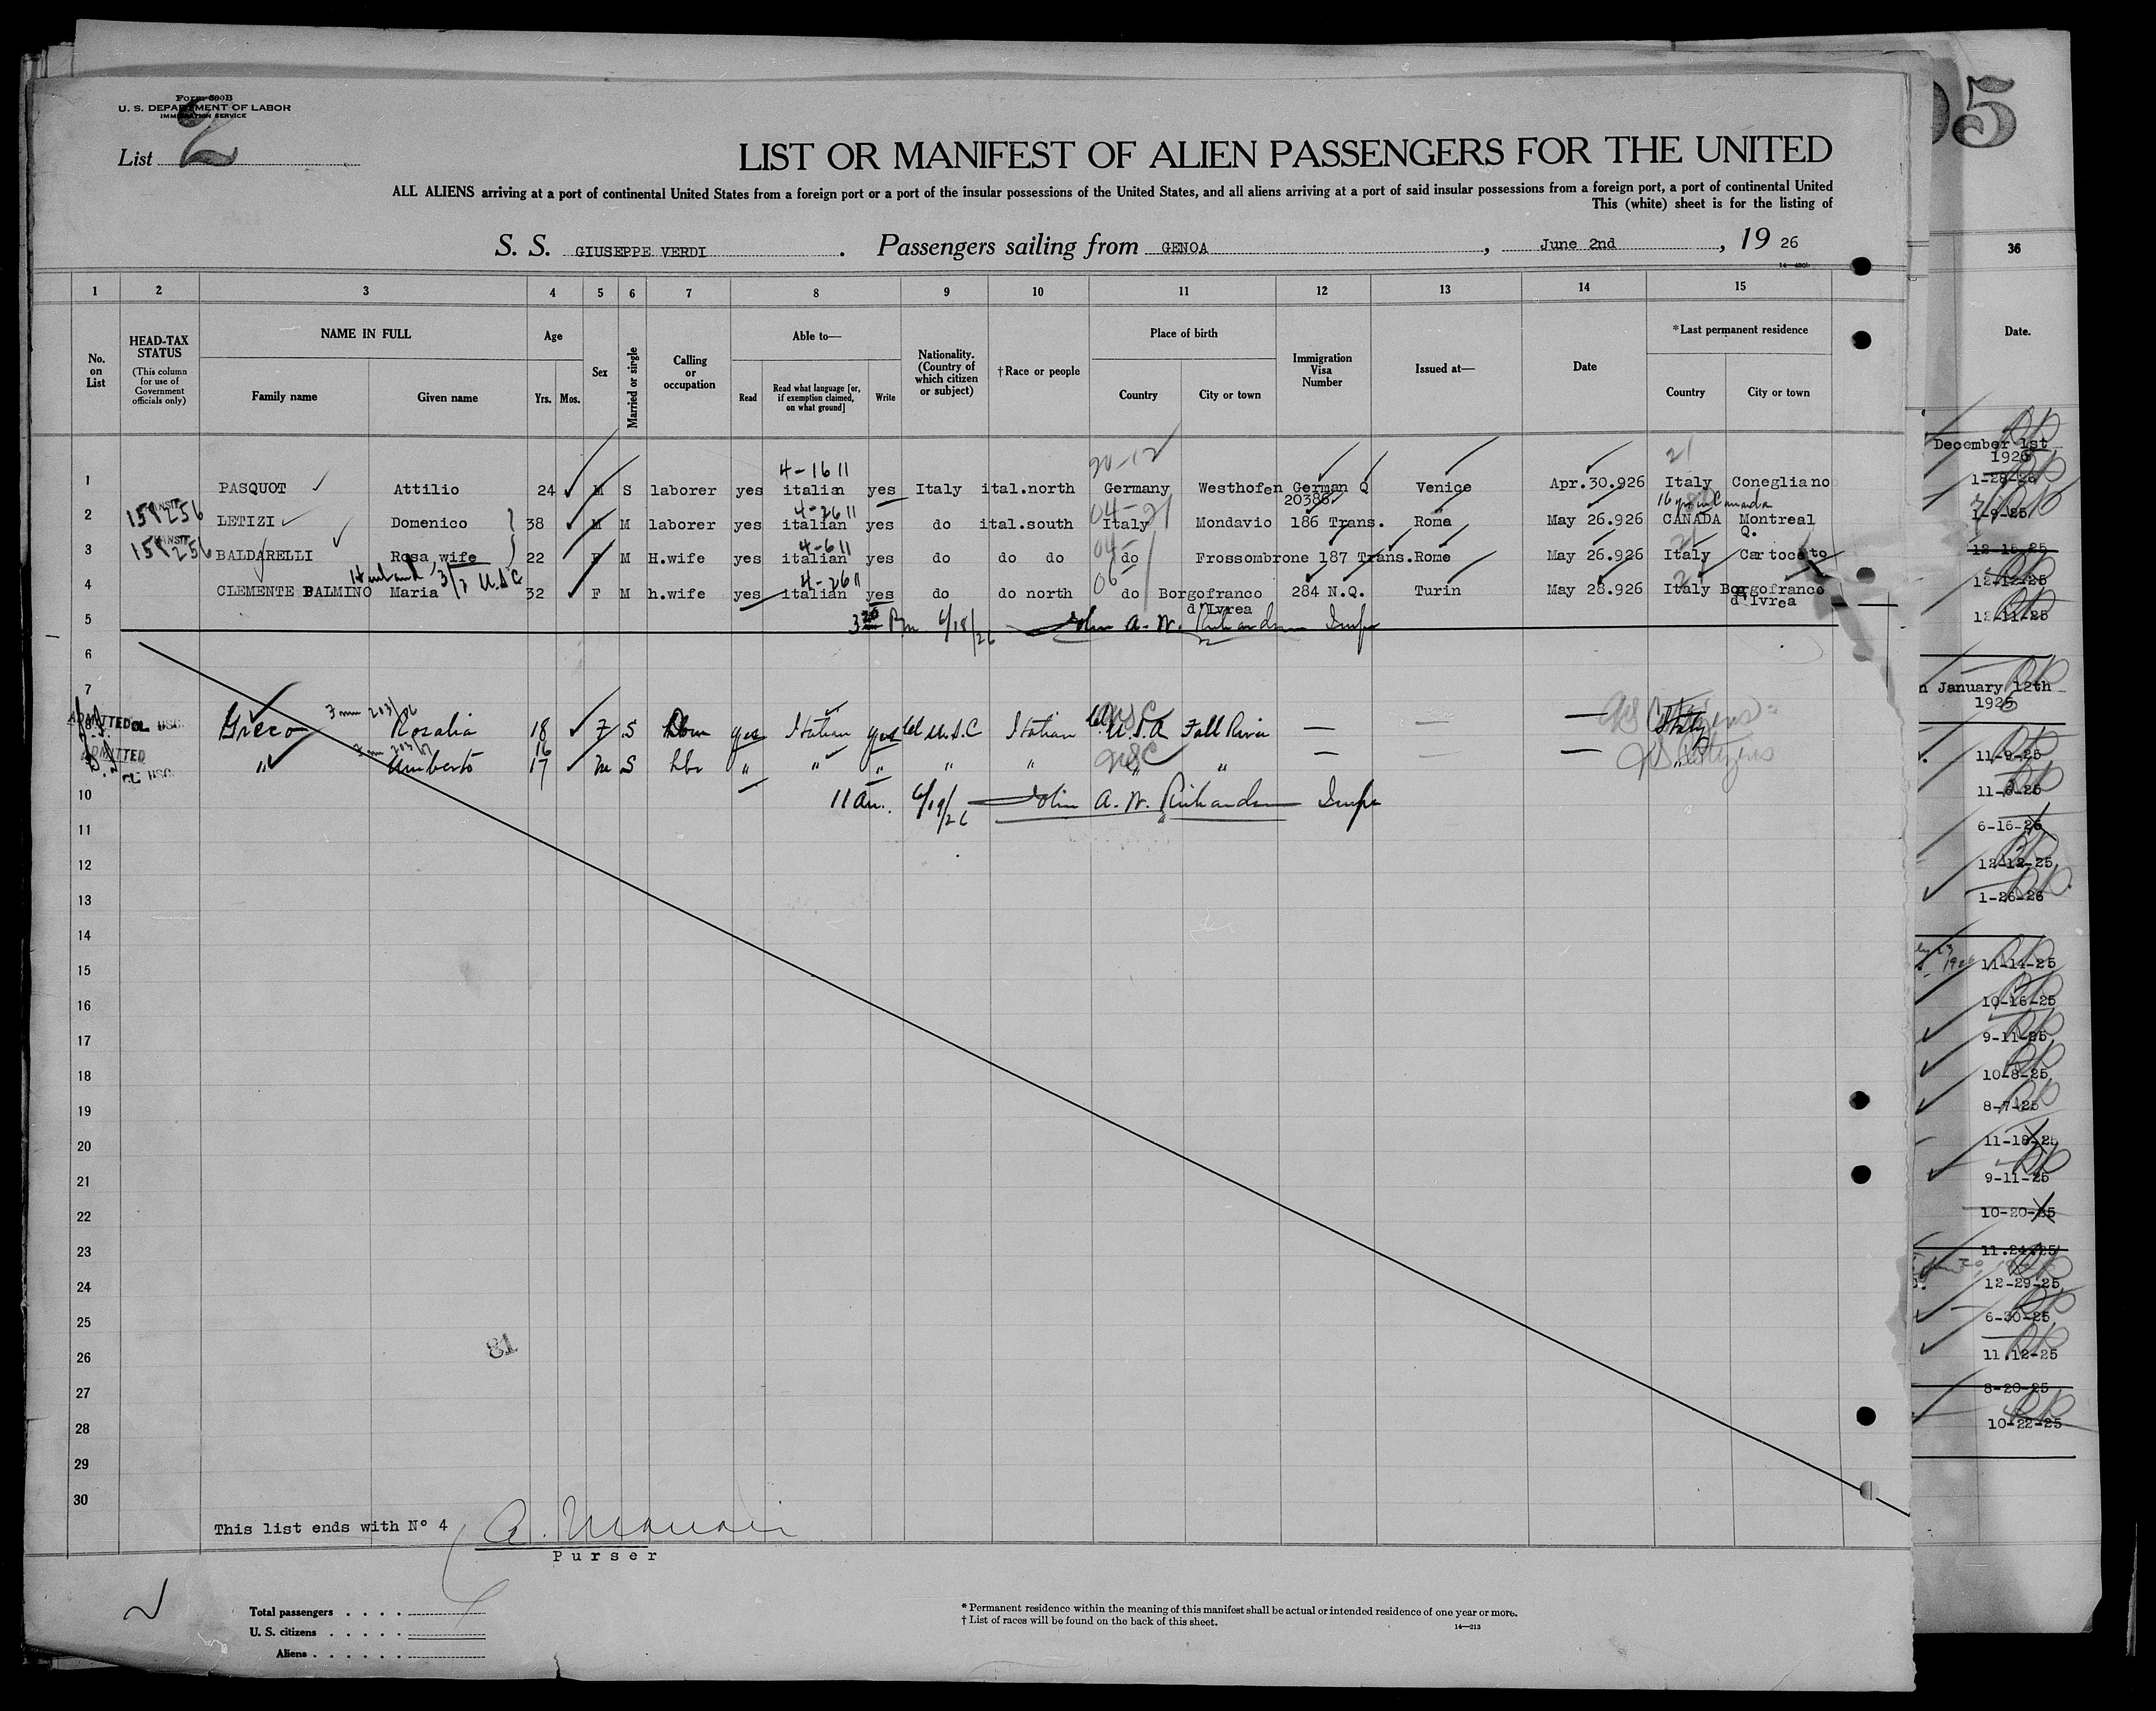 Form 500B
U. S. DEPARTMENT OF LABOR
IMMIGRATION SERVICE
List 2
LIST OR MANIFEST OF ALIEN PASSENGERS FOR THE UNITED
ALL ALIENS arriving at a port of continental United States from a foreign port or a port of the insular possessions of the United States, and all aliens arriving at a port of said insular possessions from a foreign port, a port of continental United
This (white) sheet is for the listing of
S. S. GIUSEPPE VERDI . Passengers sailing from GENOA , June 2nd , 19 26
1 2 3 4 5 6 7 8 9 10 11 12 13 14 15
No. on List
HEAD-TAX STATUS
(This column for use of Government officials only)
NAME IN FULL
Family name Given name
Age
Yrs. Mos.
Sex
Married or single
Calling or occupation
Able to—
Read Read what language [or, if exemption claimed, on what ground] Write
Nationality. (Country of which citizen or subject)
†Race or people
Place of birth
Country City or town
Immigration Visa Number
Issued at—
Date
*Last permanent residence
Country City or town
4-16 11 20-12 21
1 PASQUOT Attilio 24 M S laborer yes italian yes Italy ital.north Germany Westhofen German Q Venice Apr.30.926 Italy Conegliano
20386
158256 4-26 11 04-21
2 LETIZI Domenico 38 M M laborer yes italian yes do ital.south Italy Mondavio 186 Trans. Rome May 26.926 CANADA Montreal
Q.
158256 4-6 11 04-
3 BALDARELLI Rosa wife 22 F M H.wife yes italian yes do do do do Frossombrone 187 Trans. Rome May 26.926 Italy Cartoceto
Husband U.S.C 4-26 11 06
4 CLEMENTE PALMINO Maria 32 F M h.wife yes italian yes do do north do Borgofranco 284 N.Q. Turin May 28.926 Italy Borgofranco
d'Ivrea d'Ivrea
5 6/18/26 John A. W. Richardson Insp
6
7
8 ADMITTED USC. Greco Rosalia 18 F S yes Italian yes U.S.C Italian U.S.A Fall River — — — US Citizens Italy
9 ADMITTED USC. " Umberto 17 M S Lbr " " " " " USC " " — — — US Citizens "
10 11 am. 6/19/26 John A. W. Richardson Insp
11
12
13
14
15
16
17
18
19
20
21
22
23
24
25
26
27
28
29
30
81
This list ends with Nº 4
Purser
Total passengers . . . .
U. S. citizens . . . . .
Aliens . . . . . .
* Permanent residence within the meaning of this manifest shall be actual or intended residence of one year or more.
† List of races will be found on the back of this sheet.
14—213
05
36
Date.
December 1st
1926
1-28-26
1-9-25
12-15-25
12-12-25
12-11-25
January 12th
1926
11-9-25
11-6-25
6-16-26
12-12-25
1-26-26
11-14-25
10-16-25
9-11-25
10-8-25
8-7-25
11-18-25
9-11-25
10-20-25
11.24.25
12-29-25
6-30-25
11.12-25
8-20-25
10-22-25